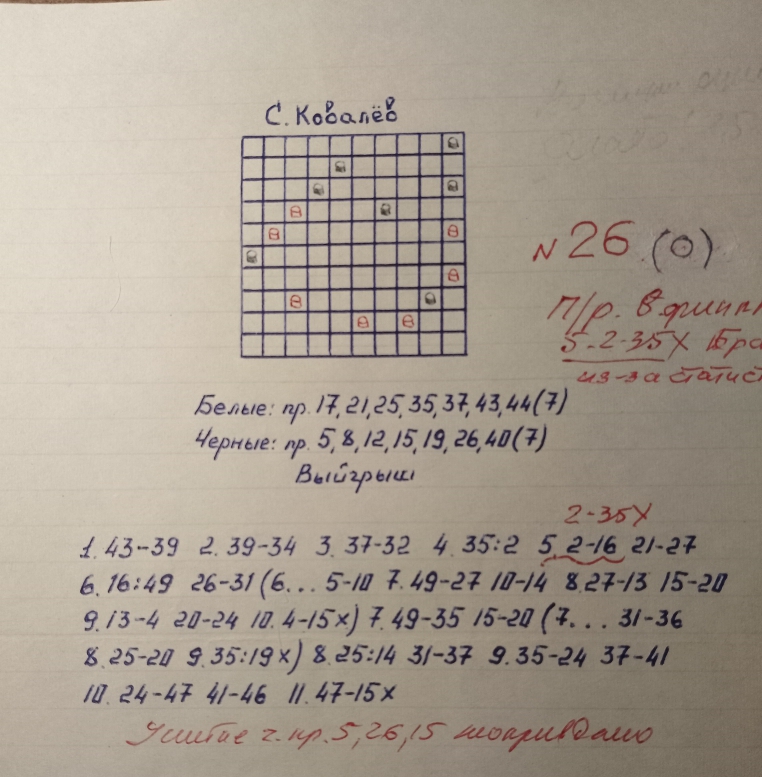 С. Ковалёв
N 26 (0)
П/р. в финал
5-2-35X
из-за статист
Белые: пр. 17, 21, 25, 35, 37, 43, 44 (7)
Черные: пр. 5, 8, 12, 15, 19, 26, 40 (7)
Выйгрыш
2-35X
1. 43-39 2. 39-34 3. 37-32 4. 35:2 5. 2-16 21-27
6. 16:49 26-31 (6... 5-10 7. 49-27 10-14 8. 27-13 15-20
9. 13-4 20-24 10. 4-15x) 7. 49-35 15-20 (7... 31-36
8. 25-20 9. 35:19x) 8. 25:14 31-37 9. 35-24 37-41
10. 24-47 41-46 11. 47-15x
ч. пр. 5, 26, 15